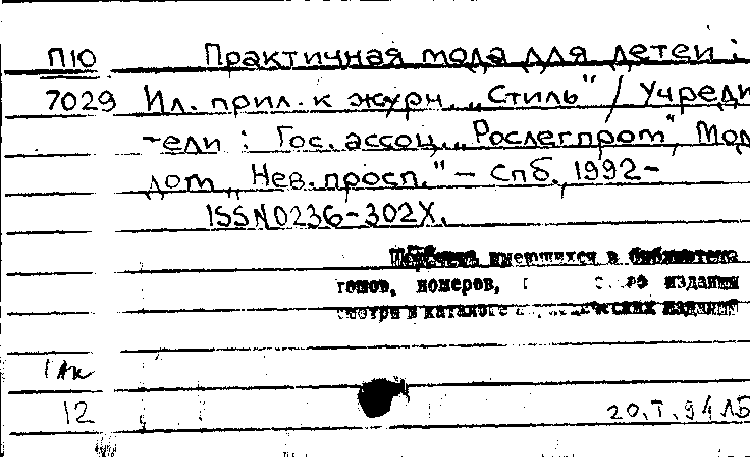 П10 Практичная мода для детей :
7029 Ил. прил. к журн. „Стиль" / Учреди
-ели : Гос. ассоц. „Рослегпром", Мод
дом „Нев. просп." – Спб., 1992-
ISSN0236-302X.
имеющихся в библиотеке
томов, номеров, издания
смотри в каталоге изданий
1 Ак
12 20.I.94 ЛБ